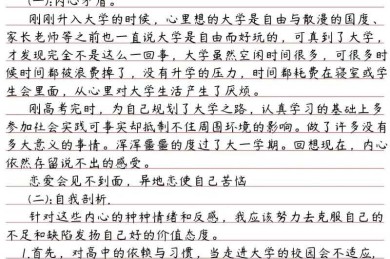 (一):内心矛盾。
刚刚升入大学的时候，心里想的大学是自由与散漫的国度、
家长老师等之前也一直说大学是自由而好玩的，可真到了大学，
才发现完全不是这么一回事，大学虽然空闲时间很多，可很多时
候时间都被浪费掉了，没有升学的压力，时间都耗费在寝室或学
生会里面，从心里对大学生活产生了厌烦。
刚高考完时，为自己规划了大学之路，认真学习的基础上多
参加社会实践可事实却抵制不住周围环境的影响。做了许多没有
多大意义的事情。浑浑噩噩的度过了大一学期。回想现在，内心
依然存留说不出的感受。
恋爱会见不到面，异地恋使自己苦恼
(二):自我剖析.
针对这些内心的种种情绪和反感，我应该努力去克服自己的
不足和缺陷发扬自己好的价值态度。
1.首先，对高中的依赖与习惯，当走进大学的校园会不适应，